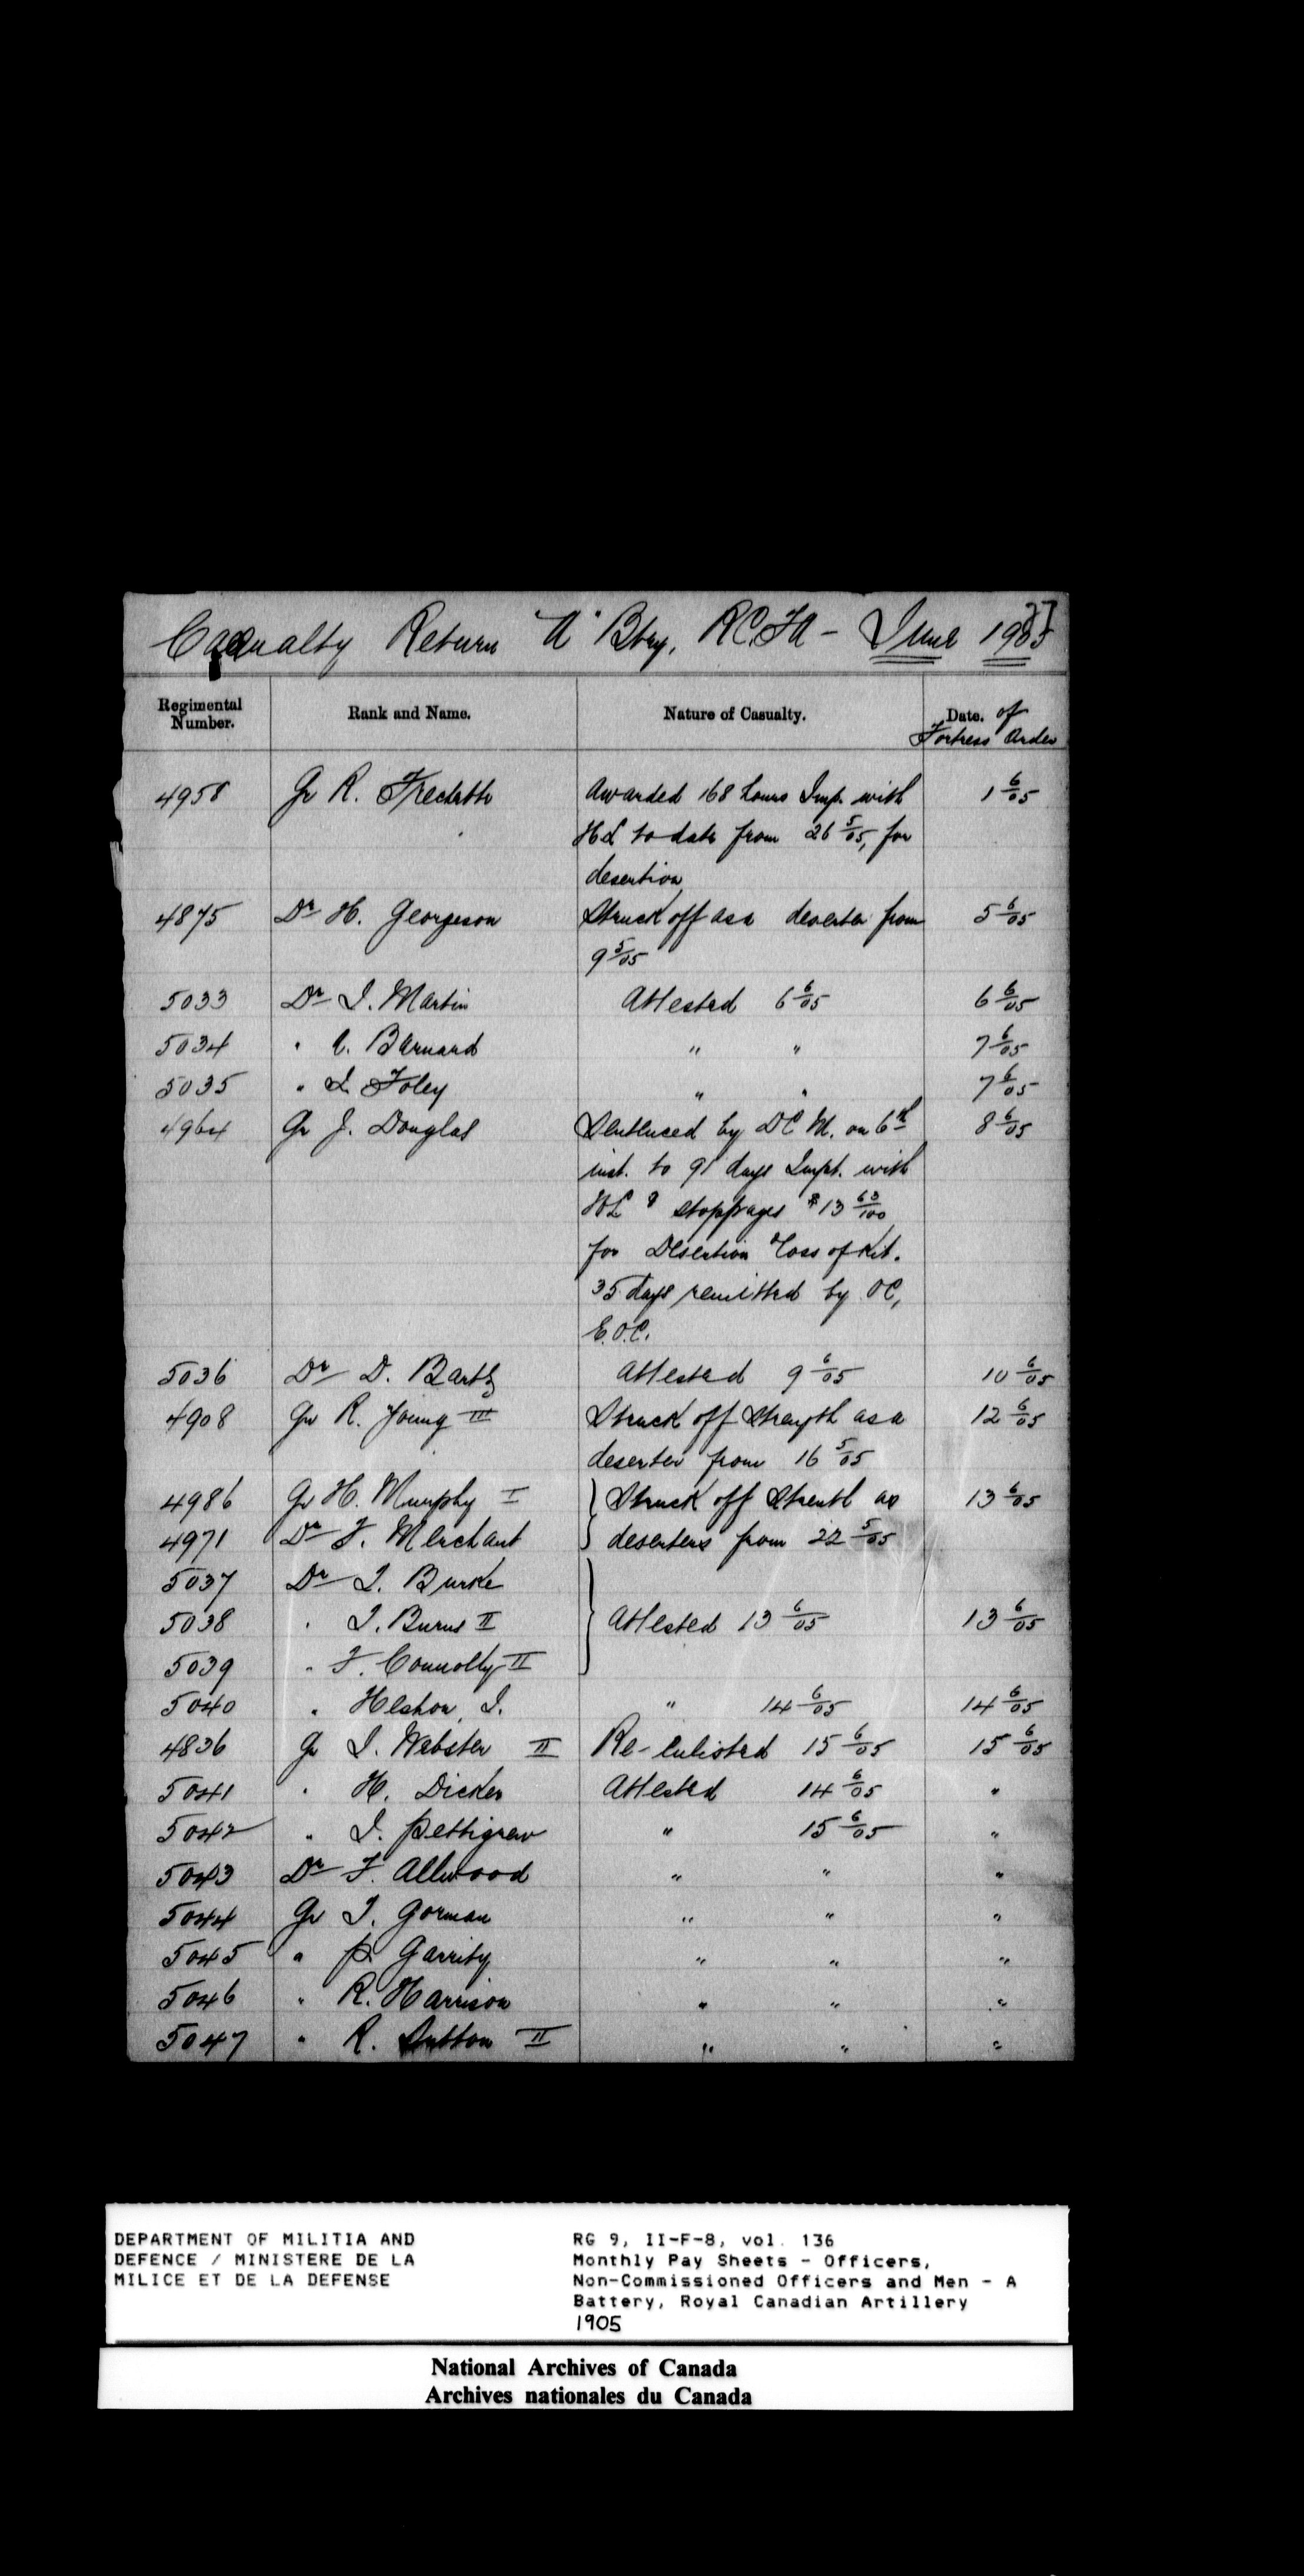 37
Casualty Return "A" Bty, RCFA - June 1905
Regimental Number. Rank and Name. Nature of Casualty. Date. of Fortress Order
4958 Gr R. Frechette Awarded 168 hours Imp. with 1 6/05
HL to date from 26 5/05, for
desertion
4875 Dr H. Georgeson Struck off as a deserter from 5 6/05
9 5/05
5033 Dr J. Martin Attested 6 6/05 6 6/05
5034 " A. Barnard " " 7 6/05
5035 " L. Foley " " 7 6/05
4964 Gr J. Douglas Sentenced by DCM. on 6th 8 6/05
inst. to 91 days Impt. with
HL & stoppages $13 63/100
for Desertion & loss of Kit.
35 days remitted by OC,
E.O.C.
5036 Dr D. Bartz Attested 9 6/05 10 6/05
4908 Gr R. Young III Struck off Strength as a 12 6/05
deserter from 16 5/05
4986 Gr H. Murphy I Struck off Strenth as 13 6/05
4971 Dr F. Merchant deserters from 22 5/05
5037 Dr J. Burke
5038 " J. Burns II Attested 13 6/05 13 6/05
5039 " F. Connolly II
5040 " J. " 14 6/05 14 6/05
4836 Gr J. Webster II Re-enlisted 15 6/05 15 6/05
5041 " H. Dicker Attested 14 6/05 "
5042 " J. Pettigrew " 15 6/05 "
5043 Dr F. Allwood " " "
5044 Gr J. Gorman " " "
5045 " P. Garrity " " "
5046 " R. Harrison " " "
5047 " R. Sutton II " " "
DEPARTMENT OF MILITIA AND
DEFENCE / MINISTERE DE LA
MILICE ET DE LA DEFENSE
RG 9, II-F-8, vol. 136
Monthly Pay Sheets - Officers,
Non-Commissioned Officers and Men - A
Battery, Royal Canadian Artillery
1905
National Archives of Canada
Archives nationales du Canada